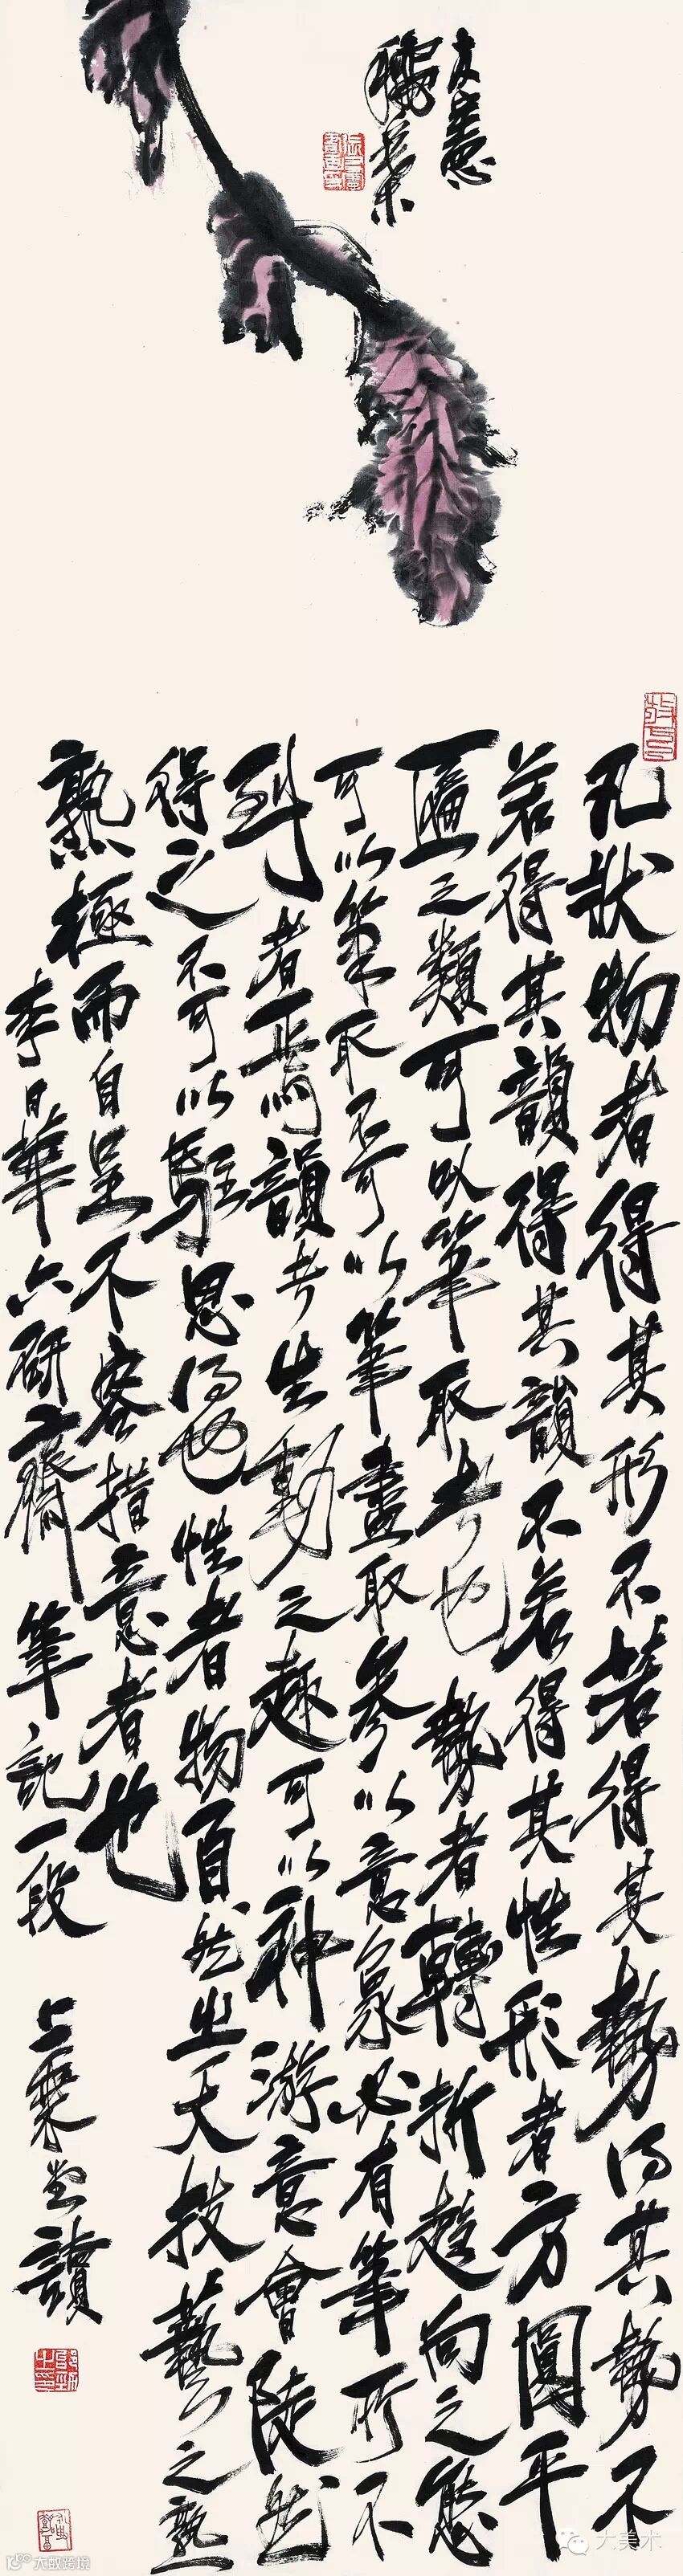 友憲
凡狀物者得其形不若得其勢得其勢不
若得其韻得其韻不若得其性形者方圓平
匾之類可以筆取者也勢者轉折趨向之態
可以筆取不可以筆盡取參以意象必有筆所不
到者焉韻者生動之趣可以神游意會陡然
得之不可以駐思得也性者物自然之天技藝之熟
熟極而自呈不容措意者也
李日華六研齋筆記一段 讀
大美术
大数跨境